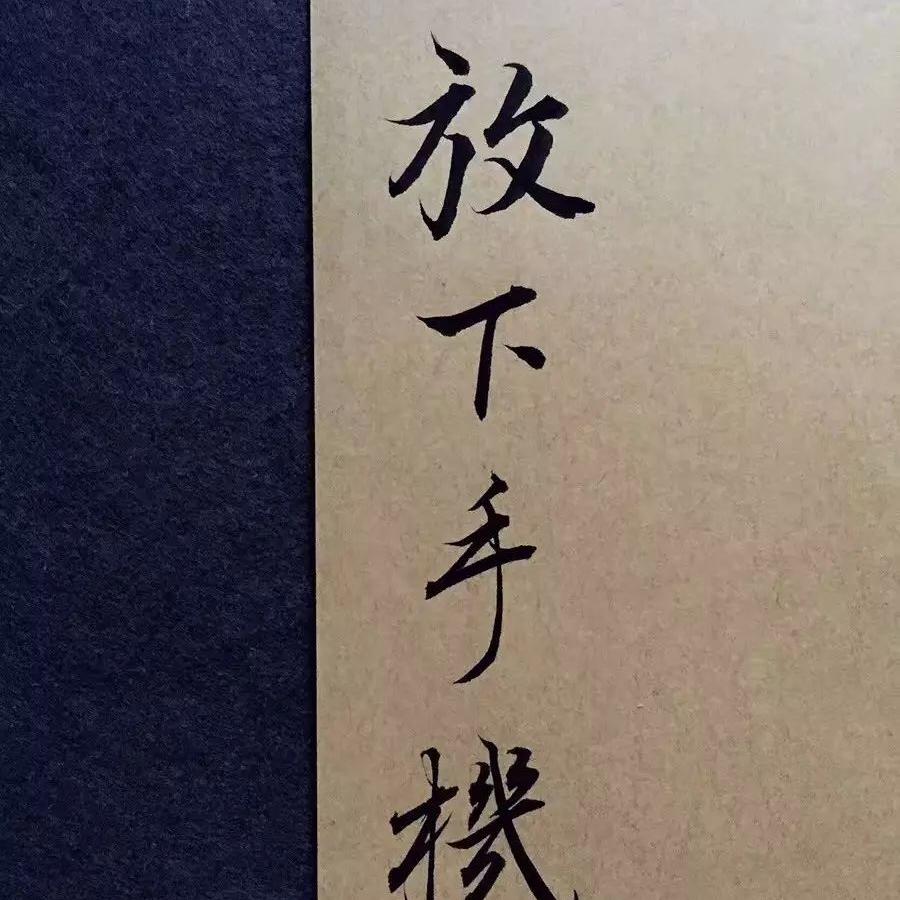 放下手機